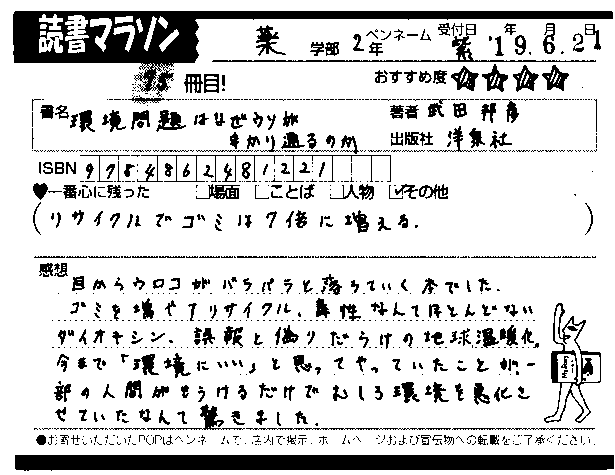 読書マラソン
薬 学部 2年 ペンネーム 紫 受付日 '19年6月21日
75冊目! おすすめ度 ★★★★
書名 環境問題はなぜウソが 著者 武田邦彦
まかり通るのか 出版社 洋泉社
ISBN 9784862481221
♥一番心に残った □場面 □ことば □人物 ☑その他
(リサイクルでゴミは7倍に増える.)
感想
目からウロコがバラバラと落ちていく本でした.
ゴミを増やすリサイクル、毒性なんてほとんどない
ダイオキシン、誤報と偽りだらけの地球温暖化。
今まで「環境にいい」と思ってやっていたことが、一
部の人間がもうけるだけでむしろ環境を悪化さ
せていたなんて驚きました.
●お寄せいただいたPOPはペンネームで、店内で掲示、ホームページおよび宣伝物への転載をご了承ください.